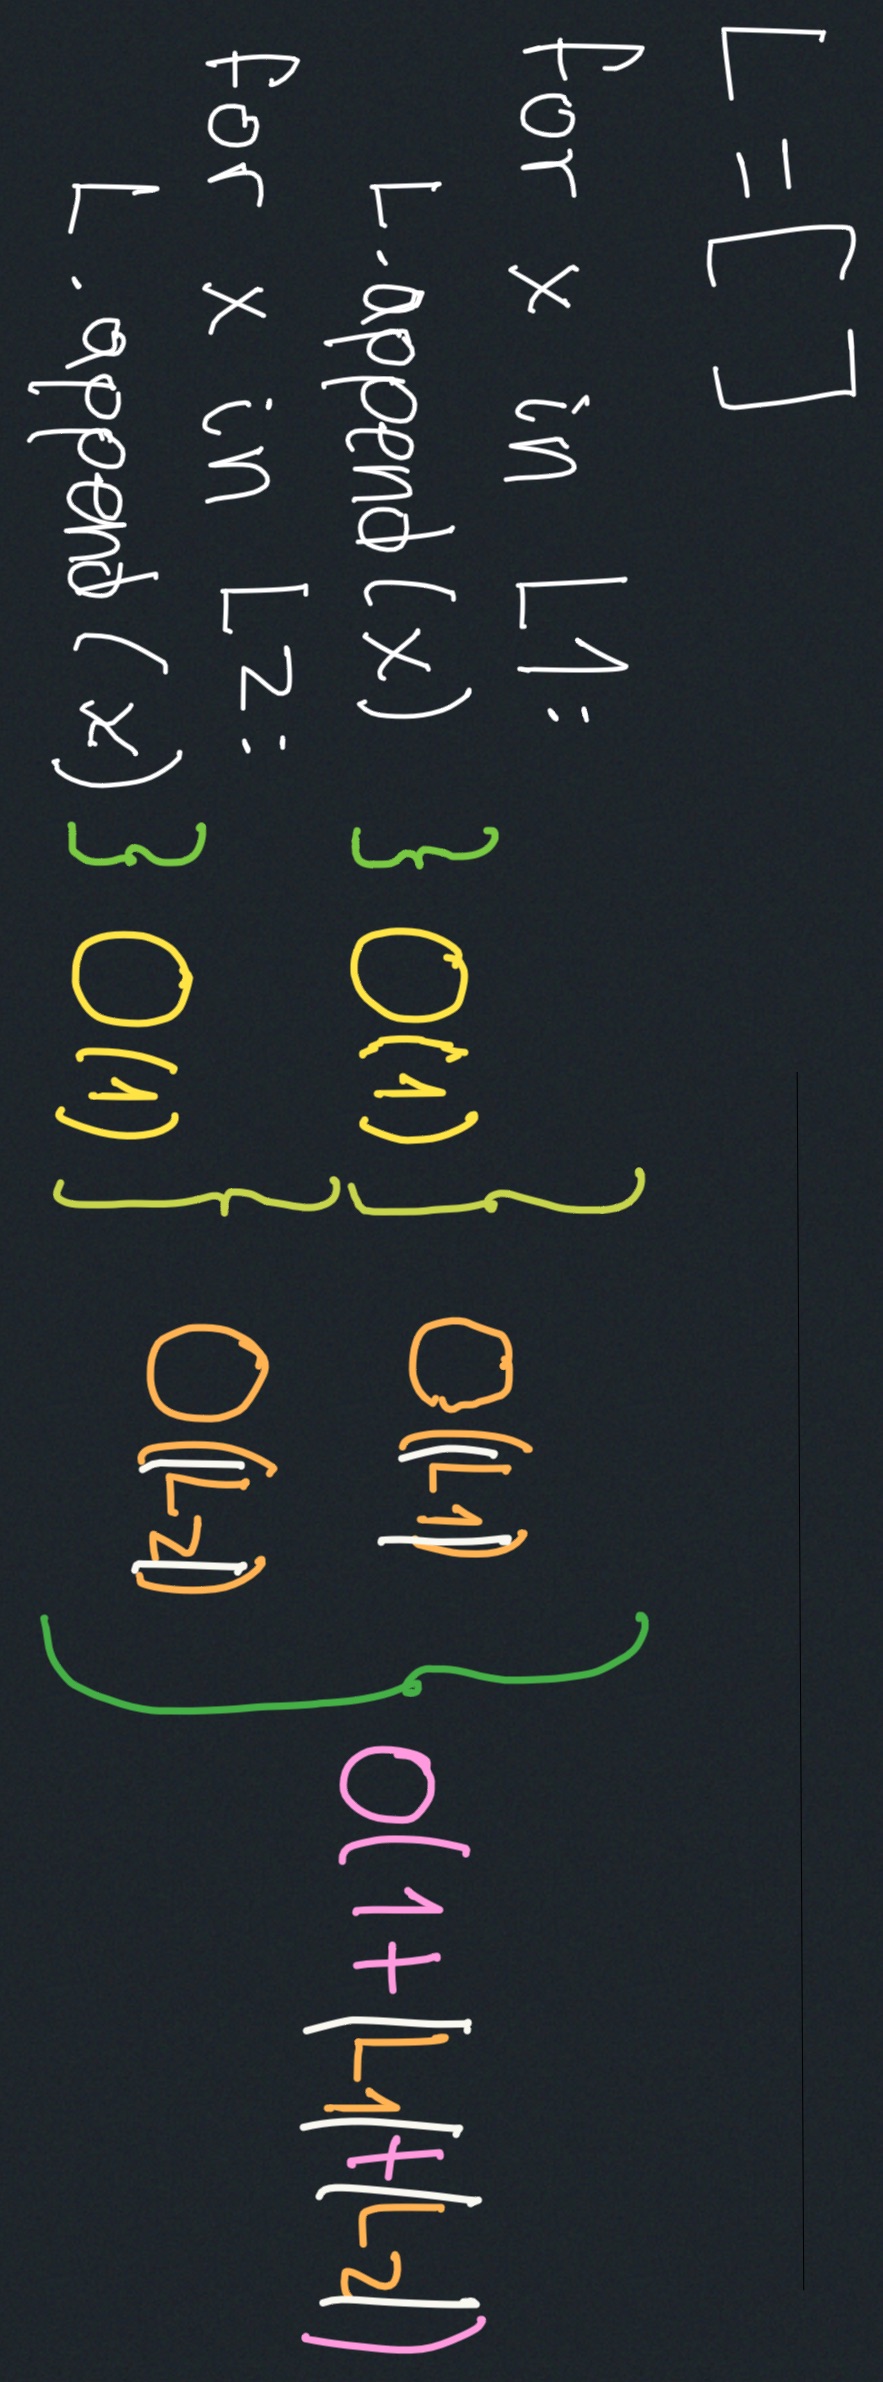 L = [ ]
for x in L1:
L.append(x) } O(1) } O(|L1|)
for x in L2:
L.append(x) } O(1) } O(|L2|) } O(1+|L1|+|L2|)